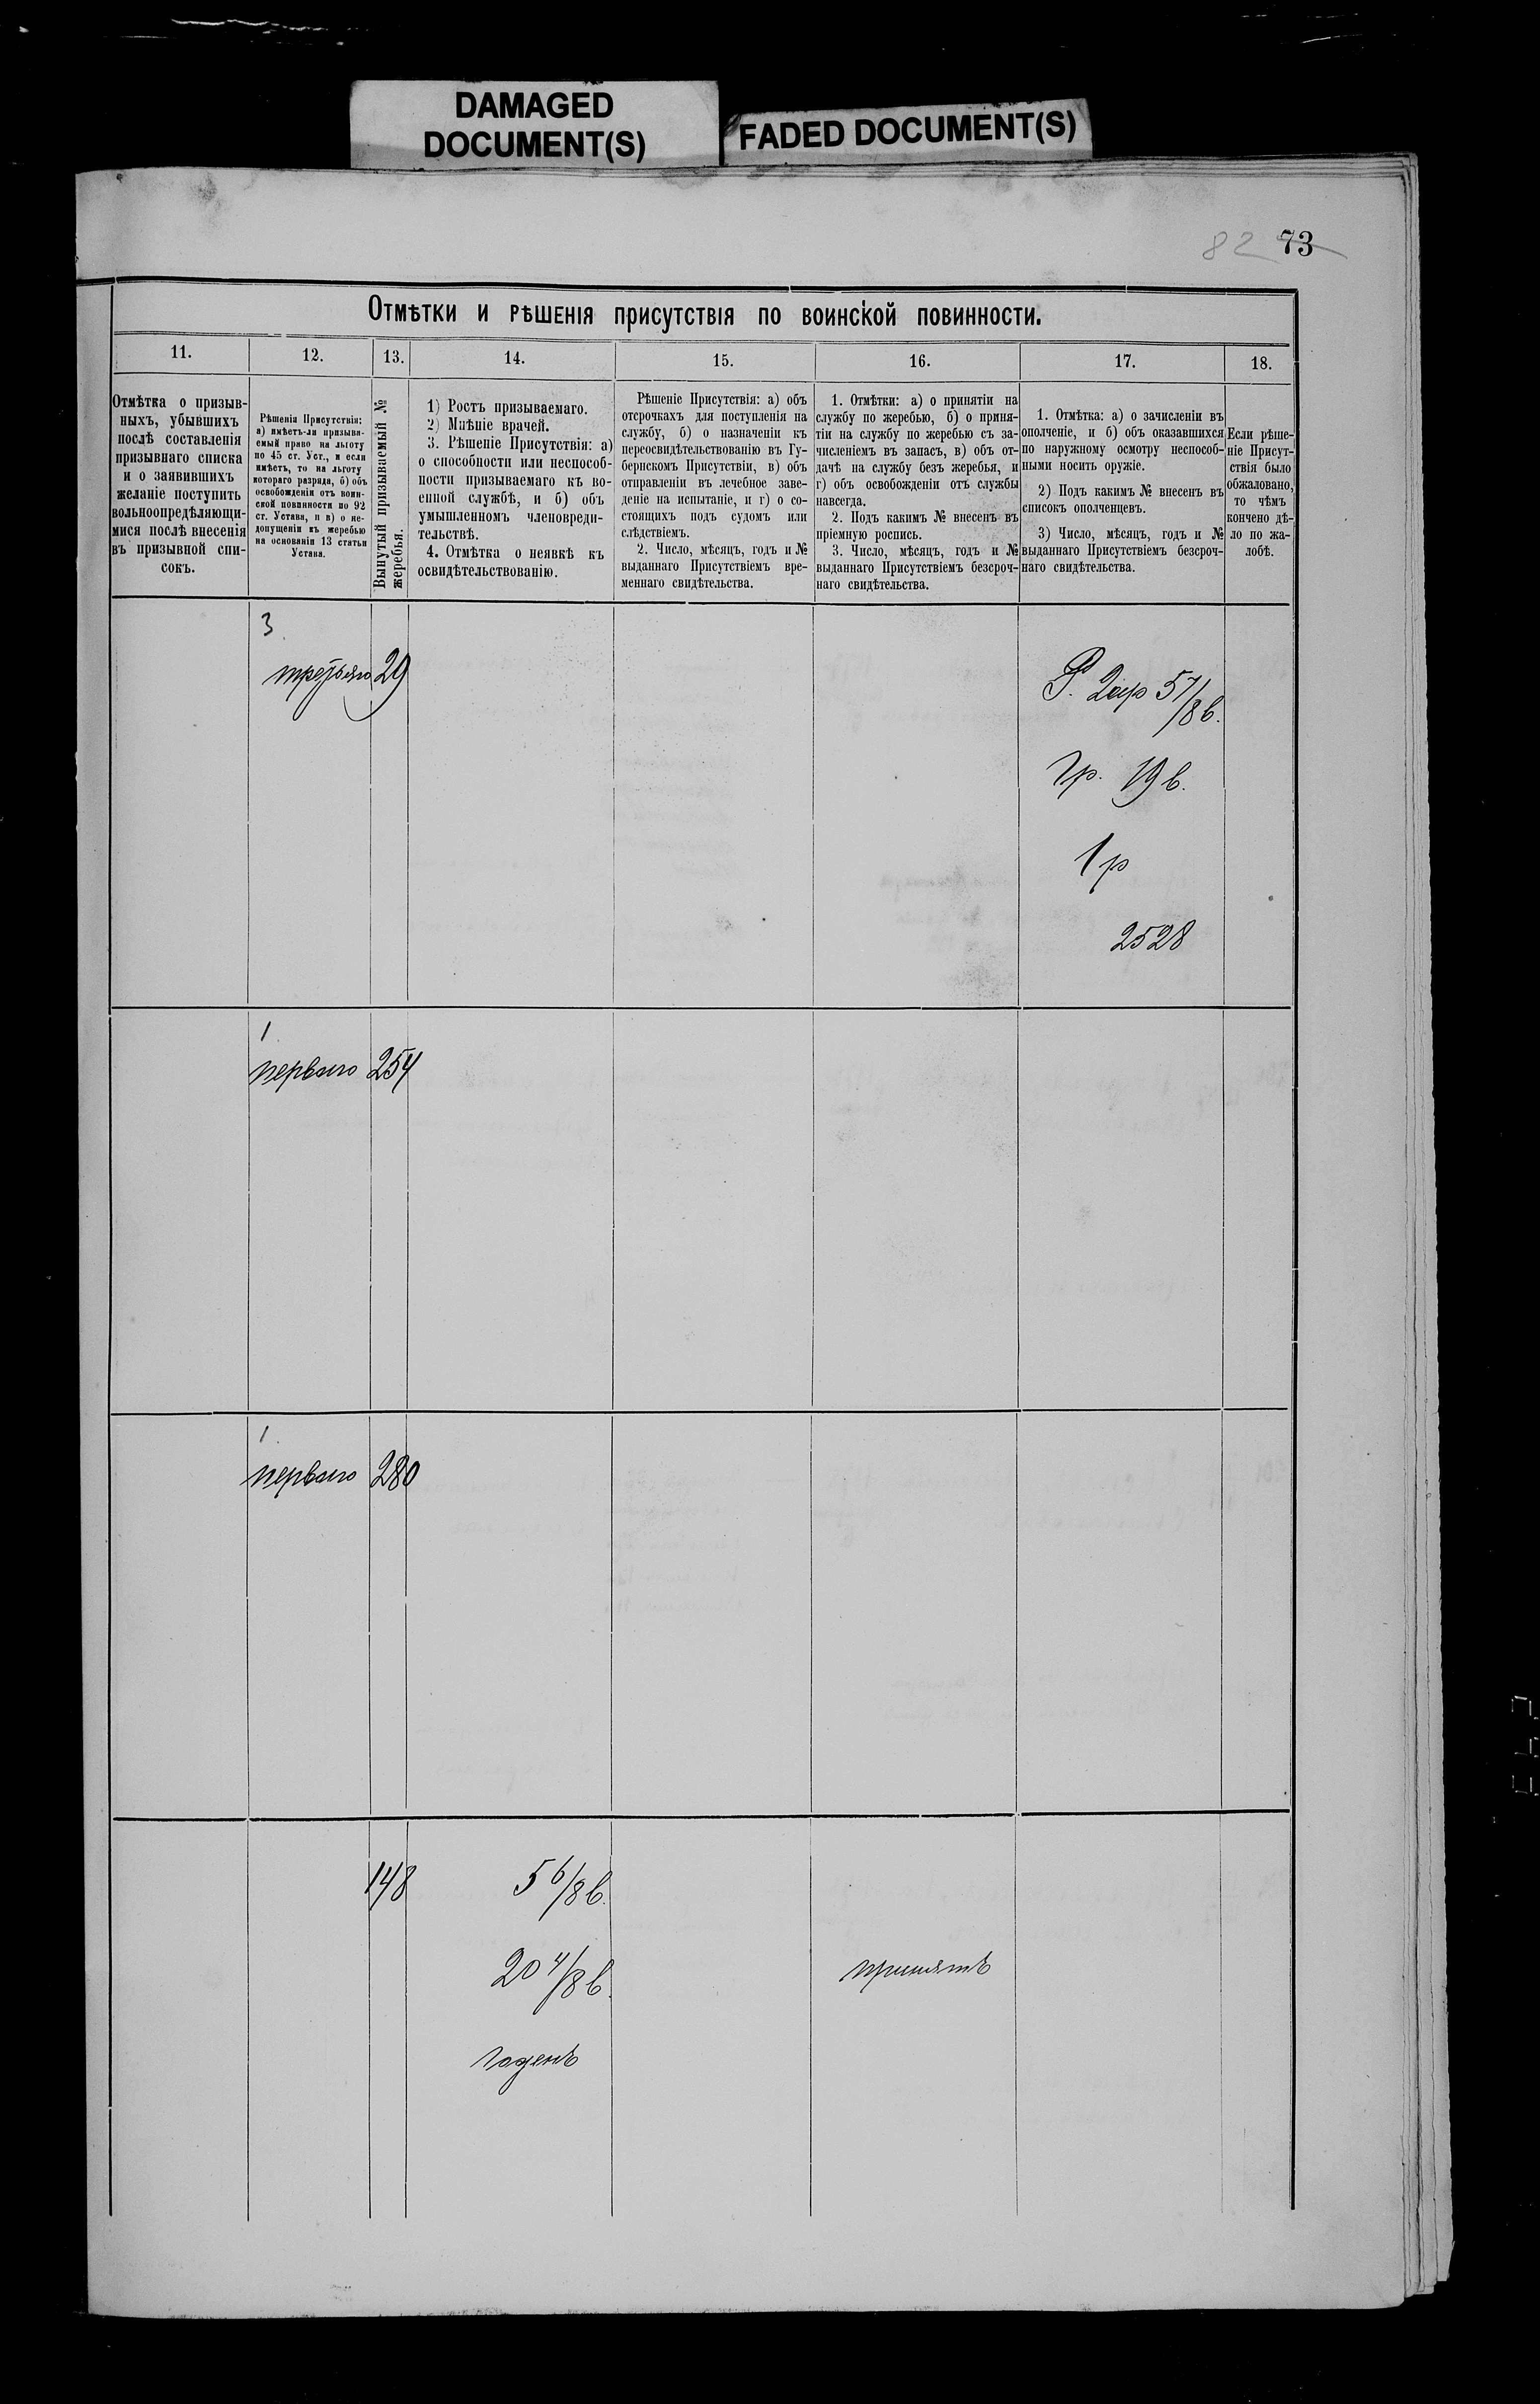 DAMAGED
DOCUMENT(S)
FADED DOCUMENT(S)
82 73
Отмѣтки и рѣшенія присутствія по воинской повинности.
11. 12. 13. 14. 15. 16. 17. 18.
Отмѣтка о призыв-
ныхъ, убывшихъ
послѣ составленія
призывнаго списка
и о заявившихъ
желаніе поступить
вольноопредѣляющи-
мися послѣ внесенія
въ призывной спи-
сокъ.
Рѣшенія Присутствія:
а) имѣетъ-ли призыва-
емый право на льготу
по 45 ст. Уст., и если
имѣетъ, то на льготу
котораго разряда, б) объ
освобожденіи отъ воин-
ской повинности по 92
ст. Устава, и в) о не-
допущеніи къ жеребью
на основаніи 13 статьи
Устава.
Вынутый призываемый №
жеребья.
1) Ростъ призываемаго.
2) Мнѣніе врачей.
3. Рѣшеніе Присутствія: а)
о способности или неспособ-
ности призываемаго къ во-
енной службѣ, и б) объ
умышленномъ членовреди-
тельствѣ.
4. Отмѣтка о неявкѣ къ
освидѣтельствованію.
Рѣшеніе Присутствія: а) объ
отсрочкахъ для поступленія на
службу, б) о назначеніи къ
переосвидѣтельствованію въ Гу-
бернскомъ Присутствіи, в) объ
отправленіи въ лечебное заве-
деніе на испытаніе, и г) о со-
стоящихъ подъ судомъ или
слѣдствіемъ.
2. Число, мѣсяцъ, годъ и №
выданнаго Присутствіемъ вре-
меннаго свидѣтельства.
1. Отмѣтки: а) о принятіи на
службу по жеребью, б) о приня-
тіи на службу по жеребью съ за-
численіемъ въ запасъ, в) объ от-
дачѣ на службу безъ жеребья, и
г) объ освобожденіи отъ службы
навсегда.
2. Подъ какимъ № внесенъ въ
пріемную роспись.
3. Число, мѣсяцъ, годъ и №
выданнаго Присутствіемъ безсроч-
наго свидѣтельства.
1. Отмѣтка: а) о зачисленіи въ
ополченіе, и б) объ оказавшихся
по наружному осмотру неспособ-
ными носить оружіе.
2) Подъ какимъ № внесенъ въ
списокъ ополченцевъ.
3) Число, мѣсяцъ, годъ и №
выданнаго Присутствіемъ безсроч-
наго свидѣтельства.
Если рѣше-
ніе Присут-
ствія было
обжаловано,
то чѣмъ
кончено дѣ-
ло по жа-
лобѣ.
3
третьяго 29
Р. 2ар 5 7/8 в.
гр. 19 в.
1 р
2528
1
перваго 254
1
перваго 280
148 5 6/8 в.
20 4/8 в. принятъ
годенъ